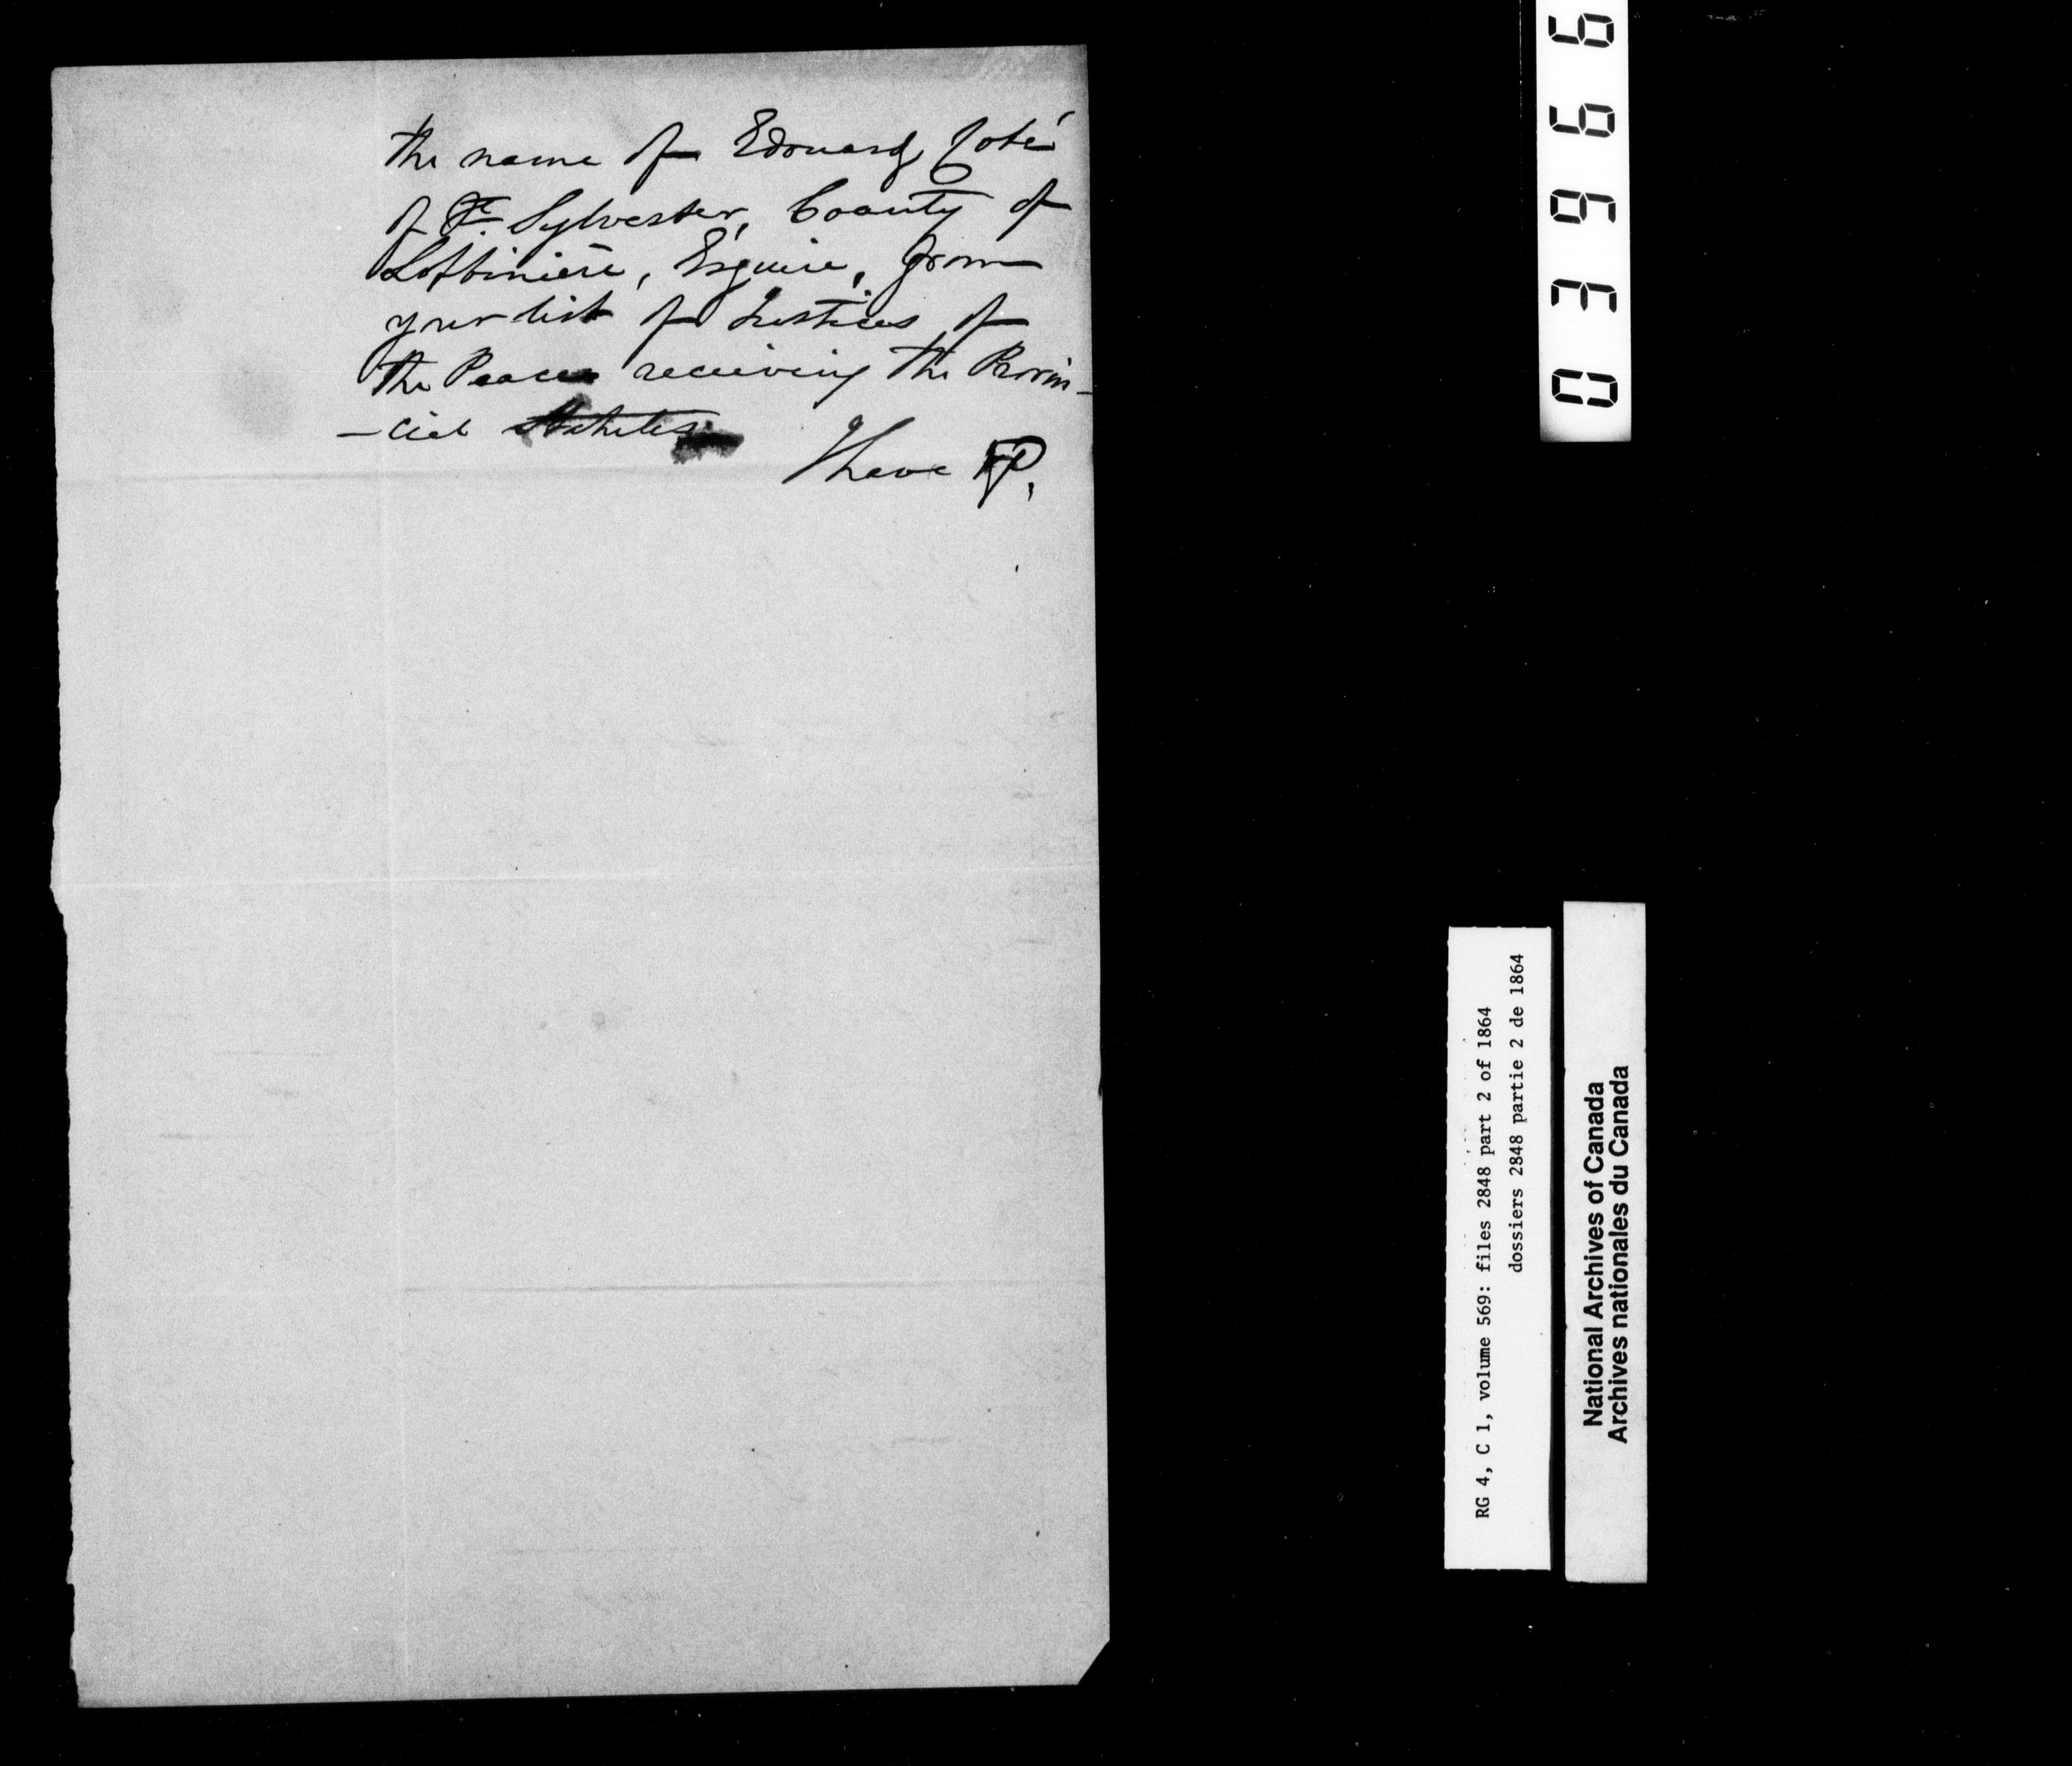 the name of Edouard Coté
of St. Sylvester, County of
Lotbiniere, Esquire, from
your list of Justices of
the Peace receiving the Provin-
-cial Statutes.
I have &c.
03966
RG 4, C 1, volume 569: files 2848 part 2 of 1864
dossiers 2848 partie 2 de 1864
National Archives of Canada
Archives nationales du Canada